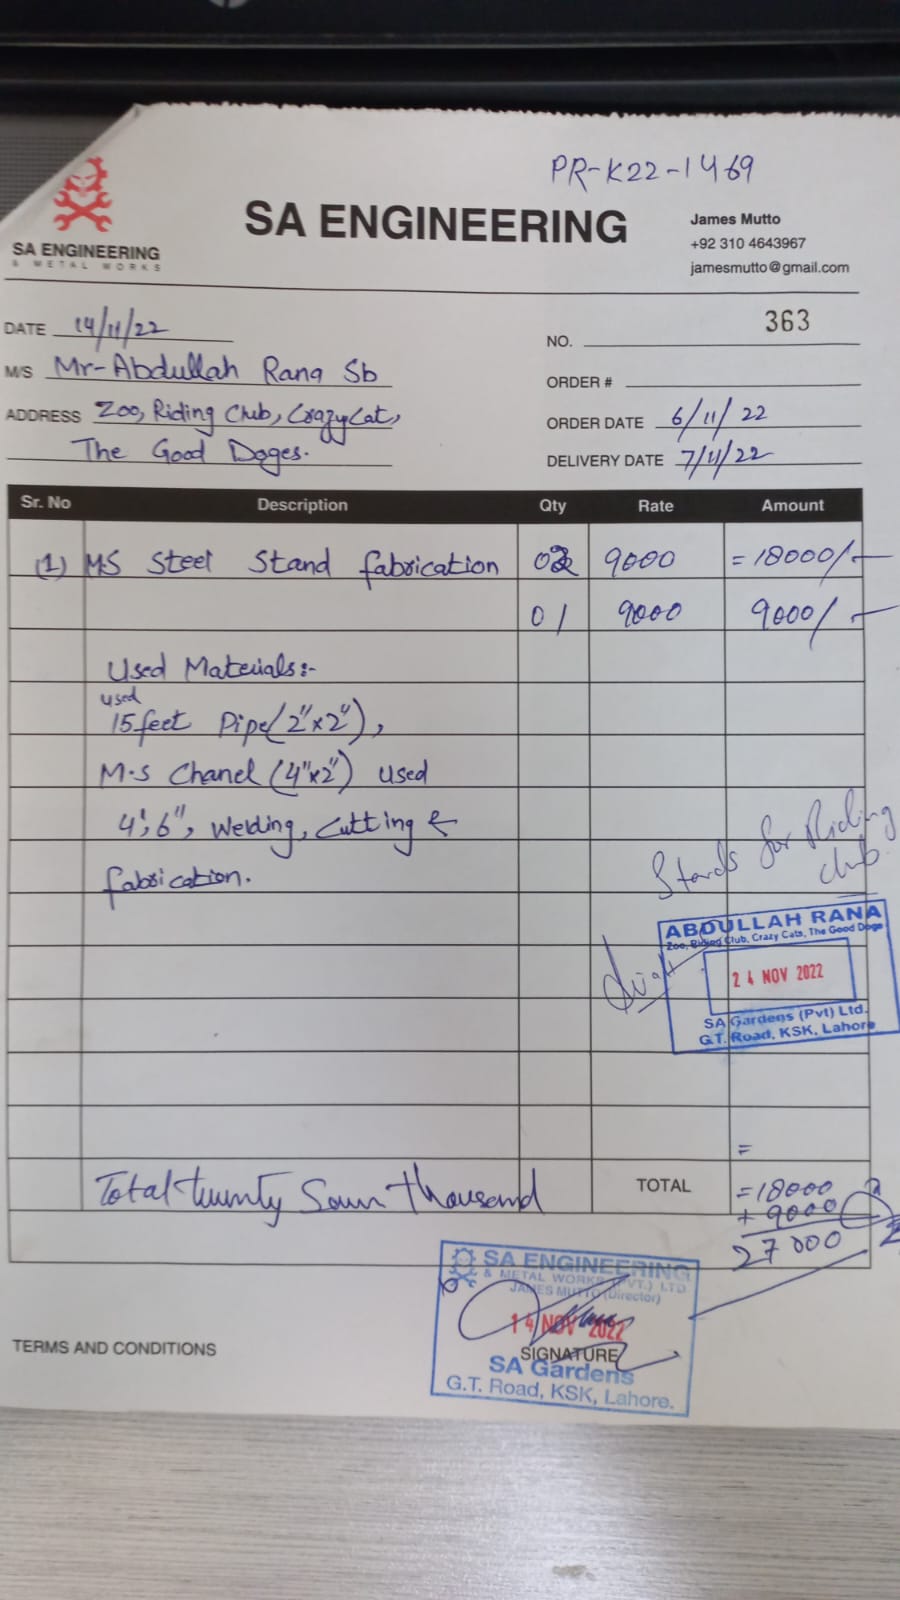 PR-K22-1469
SA ENGINEERING
& METAL WORKS
SA ENGINEERING
James Mutto
+92 310 4643967
jamesmutto@gmail.com
DATE 14/11/22
NO. 363
M/S Mr-Abdullah Rana Sb
ORDER #
ADDRESS Zoo, Riding Club, CrazyCat,
The Good Doges.
ORDER DATE 6/11/22
DELIVERY DATE 7/11/22
Sr. No Description Qty Rate Amount
(1) MS Steel Stand fabrication 02 9000 =18000/-
01 9000 9000/-
Used Materials:-
used
15feet Pipe(2"x2"),
M.S Chanel (4"x2") used
4',6", Welding, Cutting &
fabrication.
Stands for Riding
club.
ABDULLAH RANA
Zoo, Riding Club, Crazy Cats, The Good Dogs
24 NOV 2022
SA Gardens (Pvt) Ltd.
G.T. Road, KSK, Lahore
=
Total twenty Saun thousand
TOTAL
=18000
+ 9000
27000
SA ENGINEERING
& METAL WORKS (PVT.) LTD
JAMES MUTTO (Director)
14 NOV 2022
SIGNATURE
SA Gardens
G.T. Road, KSK, Lahore.
TERMS AND CONDITIONS